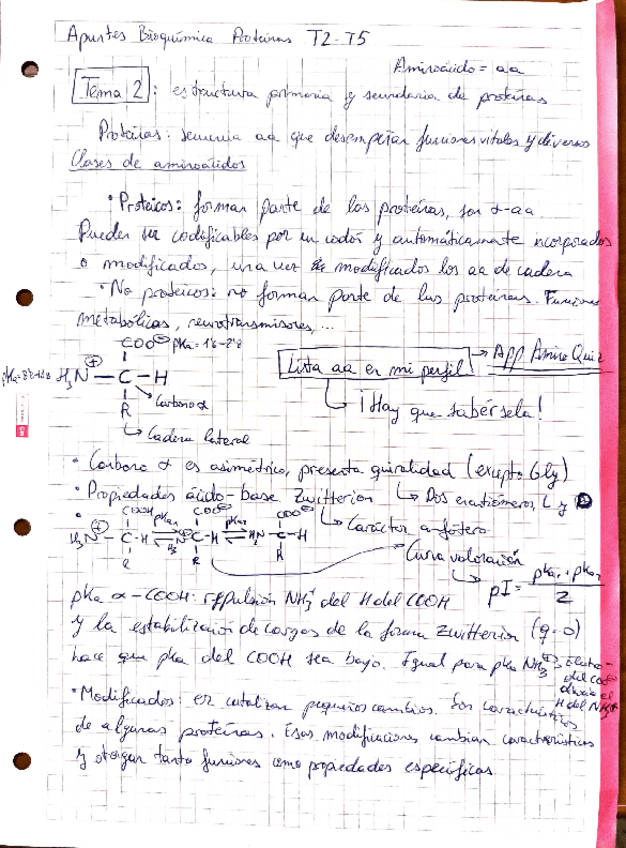 Apuntes Bioquímica Proteínas T2-T5
Aminoácido = aa
Tema 2: estructura primaria y secundaria de proteínas
Proteínas: secuencia aa que desempeñan funciones vitales y diversas
Clases de aminoácidos
• Proteicos: forman parte de las proteínas, son α-aa
Pueden ser codificables por un codón y automáticamente incorporados
o modificados, una vez modificados los aa de cadena
• No proteicos: no forman parte de las proteínas. Funciones
metabólicas, neurotransmisores, ...
COO⊖ pKa=1'8-2'8
H₃N⊕ — C — H
Carbono α
R
Cadena lateral
Lista aa en mi perfil → App Amino Quiz
¡Hay que sabérsela!
• Carbono α es asimétrico, presenta quiralidad (excepto Gly)
• Propiedades ácido-base Zwitterion
Dos enantiómeros, L y D
Carácter anfótero
COOH COO⊖ COO⊖
H₃N⊕ — C — H ⇌ pKa₁ H₃N⊕ — C — H ⇌ pKa₂ H₂N — C — H
R R R
Curva valoración
pI = pKa₁ + pKa₂ / 2
pKa α-COOH: repulsión NH₃⁺ del H del COOH
y la estabilización de cargas de la forma zwitterion (q=0)
hace que pka del COOH sea bajo. Igual para pka NH₃⊕,
del COO⊖
el
H del NH₃⊕
• Modificados: en catalizan pequeños cambios. Son característicos
de algunas proteínas. Esas modificaciones cambian características
y otorgan tanto funciones como propiedades específicas.